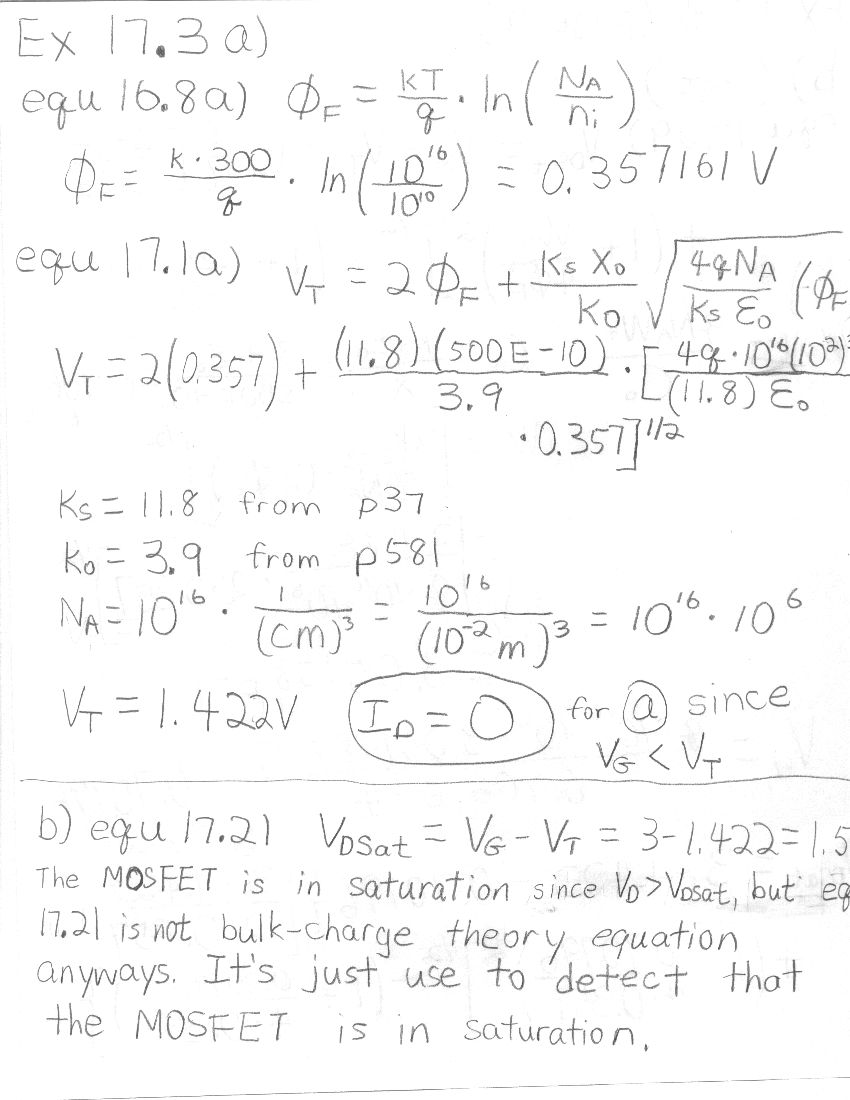 Ex 17.3 a)
equ 16.8a) ϕ_F = kT/q · ln(N_A/n_i)
ϕ_F = k·300/q · ln(10^16/10^10) = 0.357161 V
equ 17.1a) V_T = 2ϕ_F + K_s X_o/K_o √(4qN_A/K_s ε_o (ϕ_F
V_T = 2(0.357) + (11.8)(500E-10)/3.9 · [4q·10^16(10^2)^3/(11.8)ε_o
· 0.357]^1/2
K_s = 11.8 from p37
K_o = 3.9 from p581
N_A = 10^16 · 1/(cm)^3 = 10^16/(10^-2 m)^3 = 10^16 · 10^6
V_T = 1.422V I_D = 0 for ⓐ since
V_G < V_T
b) equ 17.21 V_DSat = V_G - V_T = 3-1.422=1.5
The MOSFET is in saturation since V_D>V_DSat, but eq
17.21 is not bulk-charge theory equation
anyways. It's just use to detect that
the MOSFET is in saturation.